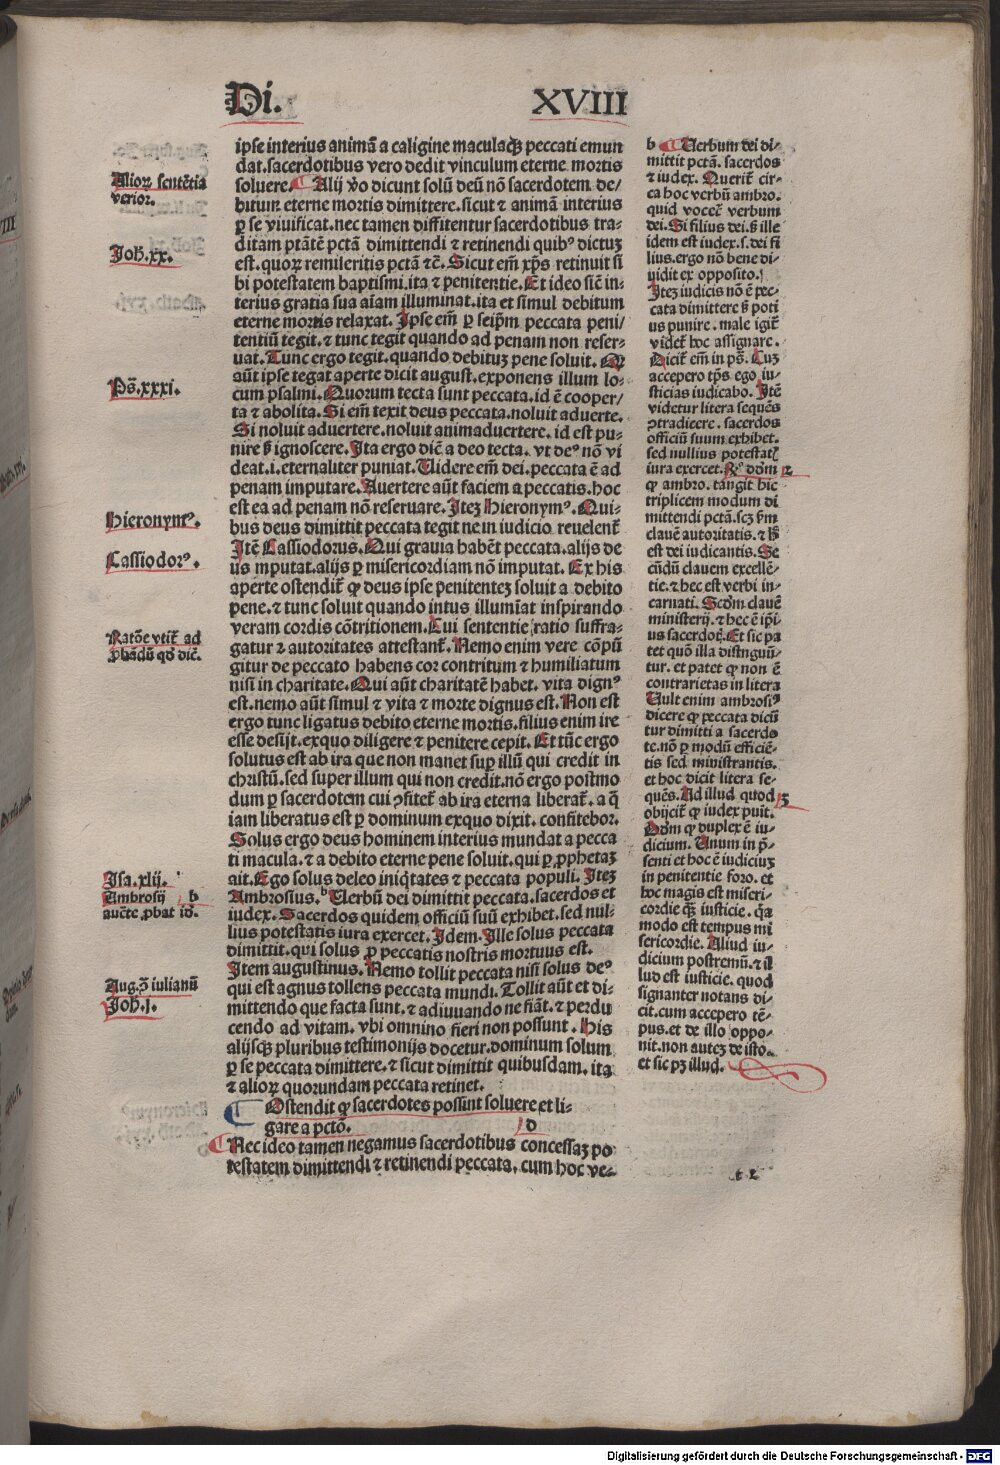 Di. XVIII
ipse interius animā a caligine maculaqꝫ peccati emun
dat. sacerdotibus vero dedit vinculum eterne mortis
soluere. Alij v̄o dicunt solū deū nō sacerdotem de/
bitum eterne mortis dimittere. sicut ⁊ animā interius
ꝑ se viuificat. nec tamen diffitentur sacerdotibus tra-
ditam ptātē pctā dimittendi ⁊ retinendi quibꝰ dictuꝫ
est. quoꝝ remiseritis pctā ⁊c̄. Sicut em̄ xp̄s retinuit si
bi potestatem baptismi. ita ⁊ penitentie. Et ideo sic̄ in-
terius gratia sua aīam illuminat. ita et simul debitum
eterne mortis relaxat. Ipse em̄ ꝑ seip̄m peccata peni/
tentiū tegit. ⁊ tunc tegit quando ad penam non reser-
uat. Tunc ergo tegit. quando debituꝫ pene soluit. Ꝙ
aūt ipse tegat aperte dicit august. exponens illum lo-
cum psalmi. Quorum tecta sunt peccata. id ē cooper/
ta ⁊ abolita. Si em̄ texit deus peccata. noluit aduerte.
Si noluit aduertere. noluit animaduertere. id est pu-
nire ß ignoscere. Ita ergo dic̄ a deo tecta. vt deꝰ nō vi
deat. i. eternaliter puniat. Videre em̄ dei. peccata ē ad
penam imputare. Auertere aūt faciem a peccatis. hoc
est ea ad penam nō reseruare. Iteꝫ Hieronymꝰ. Qui-
bus deus dimittit peccata tegit ne in iudicio reuelent̄
Itē Cassiodorus. Qui grauia habēt peccata. alijs de
us imputat. alijs ꝑ misericordiam nō imputat. Ex his
aperte ostendit̄ ꝙ deus ipse penitenteꝫ soluit a debito
pene. ⁊ tunc soluit quando intus illumīat inspirando
veram cordis cōtritionem. Cui sententie ratio suffra-
gatur ⁊ autoritates attestant̄. Nemo enim vere cōpū
gitur de peccato habens cor contritum ⁊ humiliatum
nisi in charitate. Qui aūt charitatē habet. vita dignꝰ
est. nemo aūt simul ⁊ vita ⁊ morte dignus est. Non est
ergo tunc ligatus debito eterne mortis. filius enim ire
esse desijt. exquo diligere ⁊ penitere cepit. Et tūc ergo
solutus est ab ira que non manet sup illū qui credit in
christū. sed super illum qui non credit. nō ergo postmo
dum ꝑ sacerdotem cui ↄfitet̄ ab ira eterna liberat̄. a q̄
iam liberatus est ꝑ dominum exquo dixit. confitebor.
Solus ergo deus hominem interius mundat a pecca
ti macula. ⁊ a debito eterne pene soluit. qui ꝑ ꝓphetaꝫ
ait. Ego solus deleo iniq̄tates ⁊ peccata populi. Iteꝫ
Ambrosius. b Verbū dei dimittit peccata. sacerdos et
iudex. Sacerdos quidem officiū suū exhibet. sed nul-
lius potestatis iura exercet. Idem. Ille solus peccata
dimittit. qui solus ꝓ peccatis nostris mortuus est.
Item augustinus. Nemo tollit peccata nisi solus deꝰ
qui est agnus tollens peccata mundi. Tollit aūt et di-
mittendo que facta sunt. ⁊ adiuuando ne fiāt. ⁊ perdu
cendo ad vitam. vbi omnino fieri non possunt. His
alijsqꝫ pluribus testimonijs docetur. dominum solum
ꝑ se peccata dimittere. ⁊ sicut dimittit quibusdam. ita
⁊ alioꝝ quorundam peccata retinet.
Ostendit ꝙ sacerdotes possint soluere et li-
gare a pctō. d
Nec ideo tamen negamus sacerdotibus concessaꝫ po
testatem dimittendi ⁊ retinendi peccata. cum hoc ve-
Alioꝝ sentētia
verior.
Joh̄. xx.
Ps̄. xxxi.
Hieronymꝰ.
Cassiodorꝰ.
Ratōe vtit̄ ad
ꝓbādū qd̄ dic̄.
Isa. xlij.
Ambrosij b
aucte ꝓbat id̄.
Aug. ↄ̄ iulianū
Joh̄. j.
b Verbum dei di-
mittit pctā. sacerdos
⁊ iudex. Querit̄ cir-
ca hoc verbū ambro.
quid vocet̄ verbum
dei. Si filius dei. ß ille
idem est iudex. s. dei fi
lius. ergo nō bene di-
uidit ex opposito.
Iteꝫ iudicis nō ē pec-
cata dimittere ß poti
us punire. male igit̄
videt̄ hoc assignare.
Dicit̄ em̄ in ps̄. Cuꝫ
accepero tp̄s ego iu-
sticias iudicabo. Itē
videtur litera sequēs
ↄtradicere. sacerdos
officiū suum exhibet.
sed nullius potestat̄
iura exercet. Rꝰ dōm
ꝙ ambro. tangit hic
triplicem modum di
mittendi pctā. scꝫ ẜm
clauē autoritatis. ⁊ h̄
est dei iudicantis. Se
cūdū clauem excellē-
tie. ⁊ hec est verbi in-
carnati. Scdm clauē
ministerij. ⁊ hec ē ip̄i
us sacerdot̄. Et sic pa
tet quō illa distinguū-
tur. et patet ꝙ non ē
contrarietas in litera
Vult enim ambrosiꝰ
dicere ꝙ peccata dicū
tur dimitti a sacerdo
te. nō ꝑ modū efficiē-
tis sed ministrantis.
et hoc dicit litera se-
quēs. Ad illud quod
obijcit̄ ꝙ iudex puit̄.
Dōm ꝙ duplex ē iu-
dicium. Unum in p̄-
senti et hoc ē iudiciuꝫ
in penitentie foro. et
hoc magis est miseri-
cordie qꝫ iusticie. q̄a
modo est tempus mi
sericordie. Aliud iu-
dicium postremū. ⁊ il
lud est iusticie. quod
signanter notans di-
cit. cum accepero tē-
pus. et de illo oppo-
nit. non auteꝫ de isto.
et sic pꝫ illud.
t 2
Digitalisierung gefördert durch die Deutsche Forschungsgemeinschaft - DFG